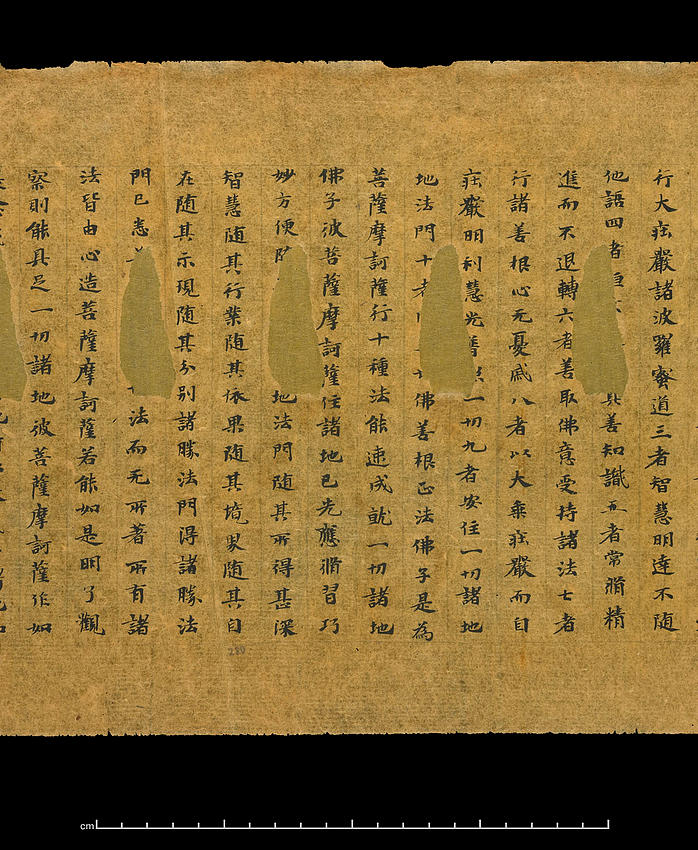 行大莊嚴諸波羅蜜道三者智慧明達不隨
他語四者 善知識五者常脩精
進而不退轉六者善取佛意受持諸法七者
行諸善根心无憂慼八者以大乘莊嚴而自
莊嚴明利慧光普 一切九者安住一切諸地
地法門十者 佛善根正法佛子是為
菩薩摩訶薩行十種法能速成就一切諸地
佛子彼菩薩摩訶薩住諸地已先應脩習巧
妙方便 地法門隨其所得甚深
智慧隨其行業隨其依果隨其境界隨其自
在隨其示現隨其分別諸勝法門得諸勝法
門已悉 法而无所著所有諸
法皆由心造菩薩摩訶薩若能如是明了觀
察則能具足一切諸地彼菩薩摩訶薩作如
280
cm